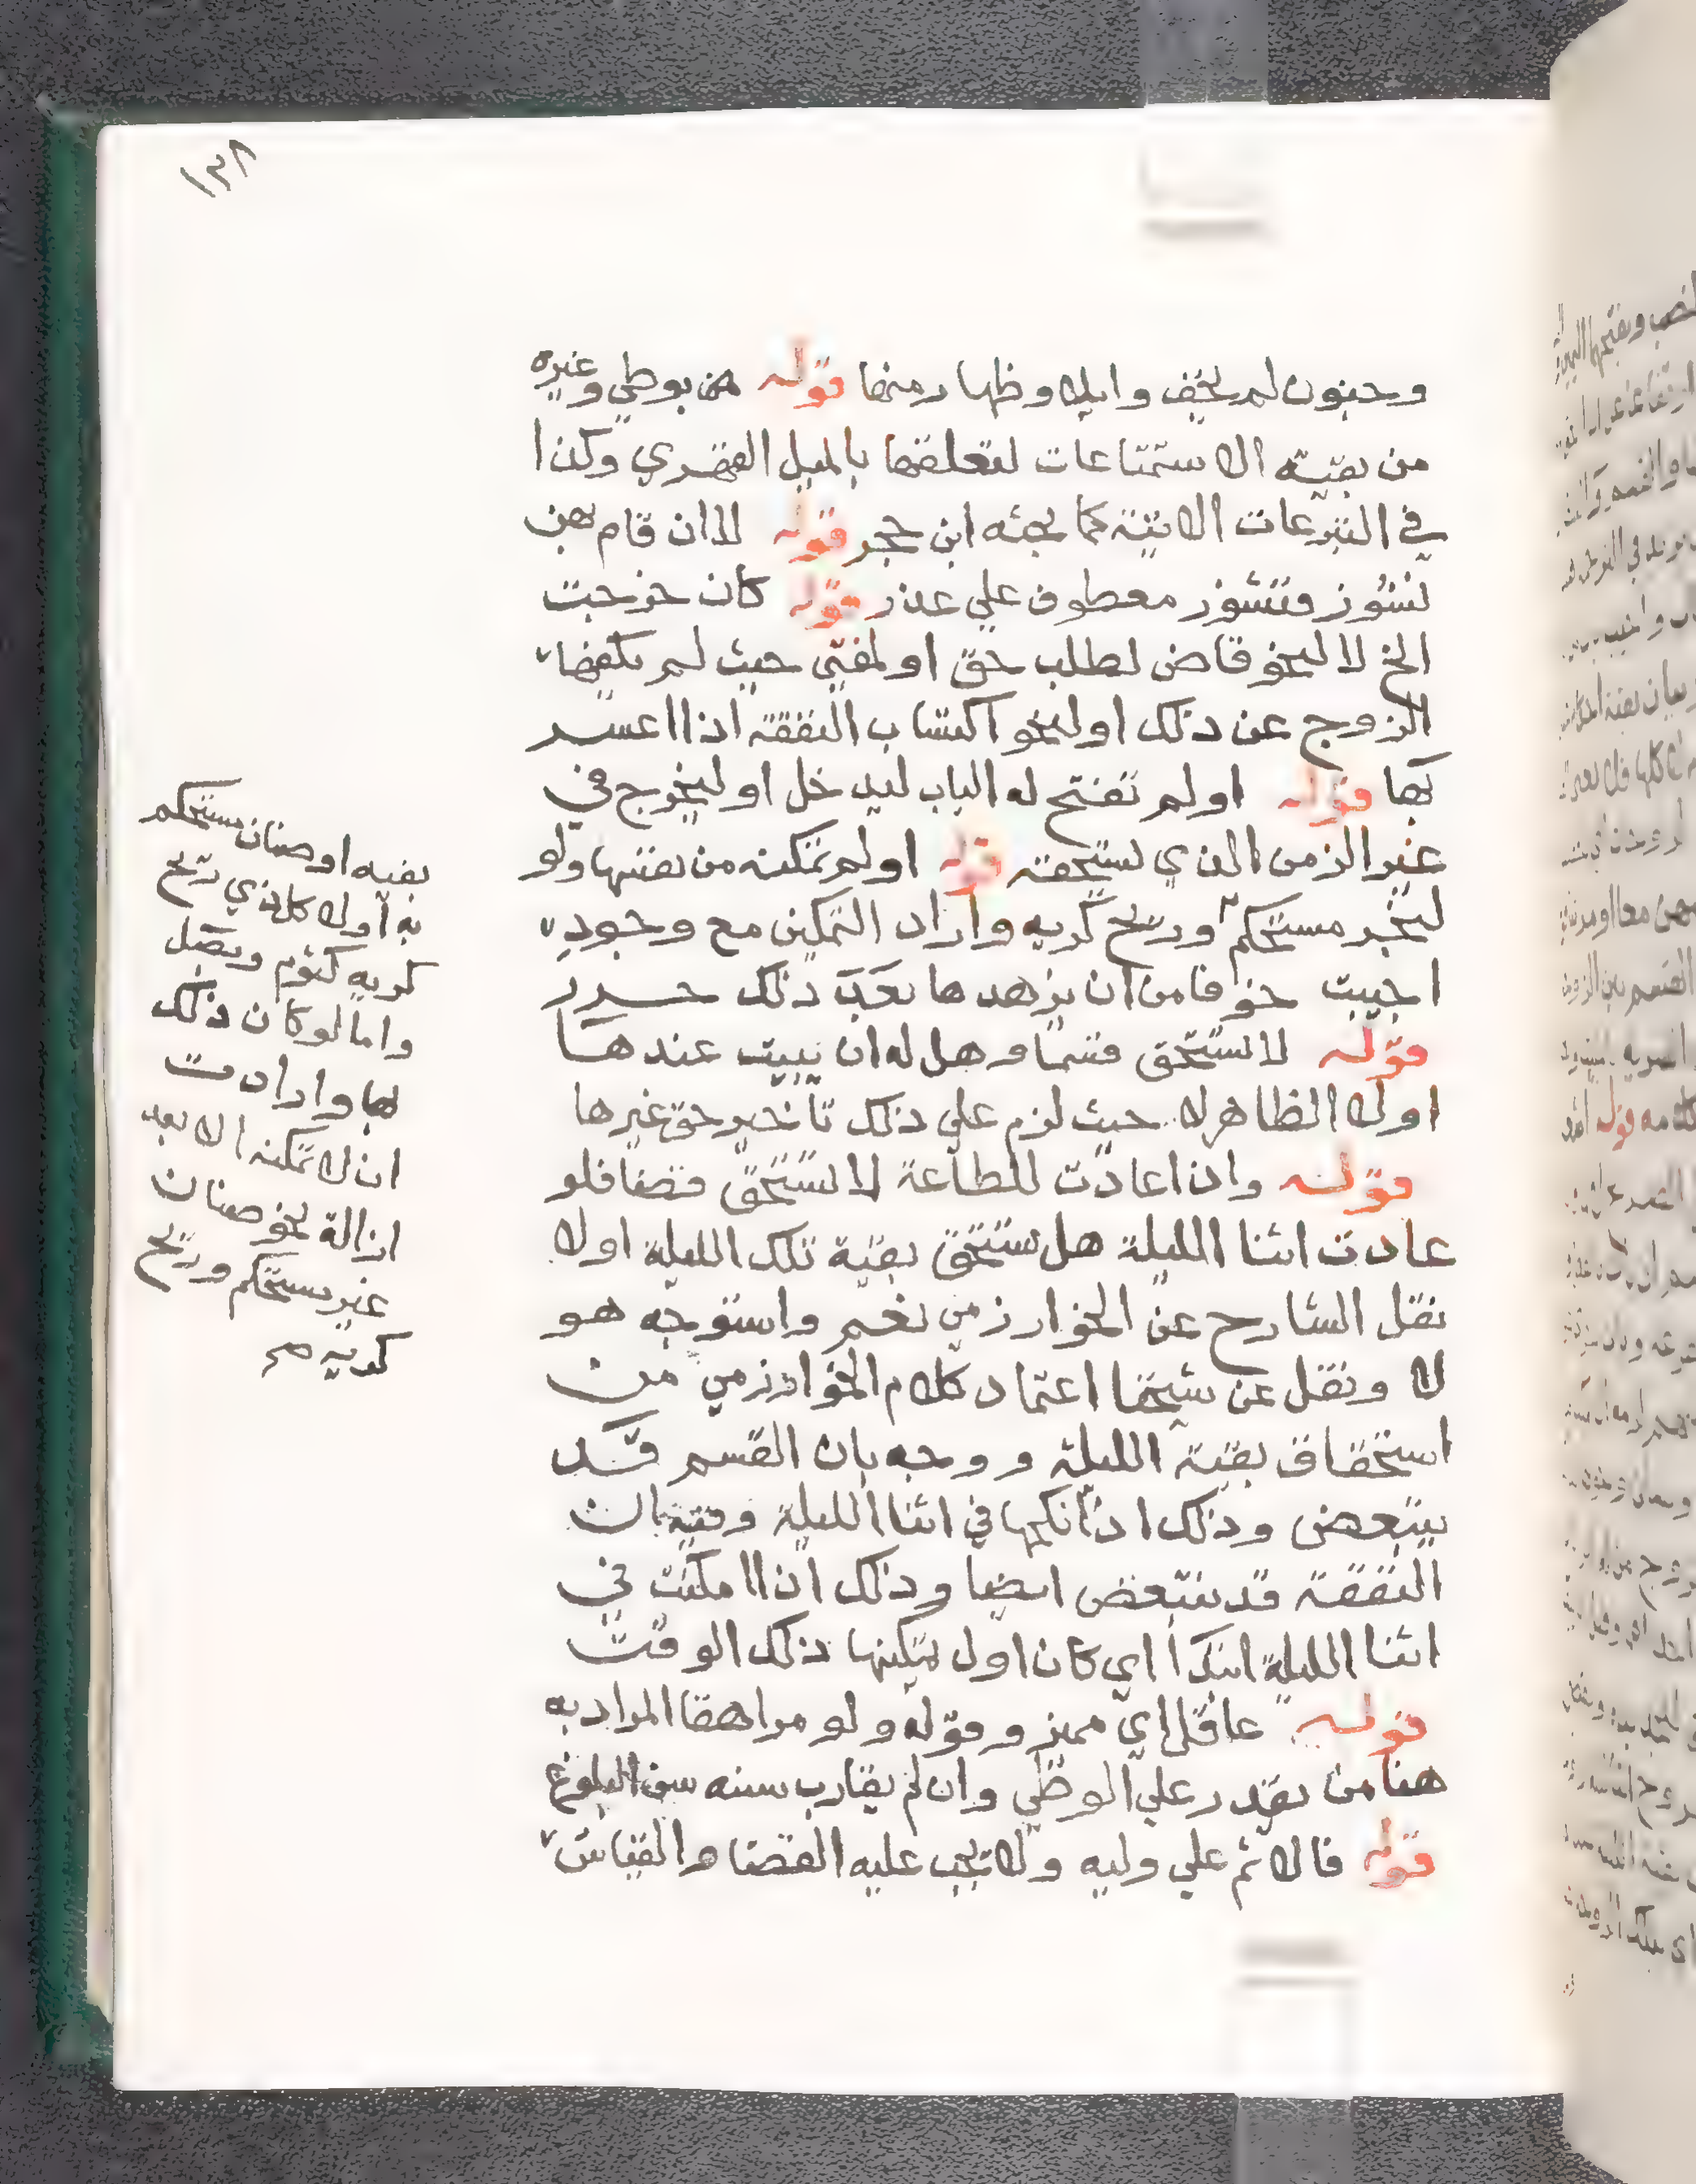 ١٣٨
وجنون لم يخف وايلا وظهار منها قوله هن بوطي وغيره
من بقية الاستمتاعات لتعلقها بالميل القهري وكذا
في التبرعات الاتية كما بحثه ابن حجر قوله الا ان قام بهن
نشوز فنشوز معطوف علي عذر قوله كان خرجت
الخ لا لنحو قاض لطلب حق او لمفتي حيث لم يكفها
الزوج عن ذلك او لنحو اكتساب النفقة اذا اعسر
بها قوله او لم تفتح له الباب ليدخل او ليخرج في
غير الزمن الذي تستحقه قوله او لم تمكنه من نفسها ولو
لبخر مستحكم وريح كريه واراد التمكين مع وجوده
اجيبت خوفا من ان يزهدها بعد ذلك ح ر
قوله لا تستحق قسما وهل له ان يبيت عندها
اولا الظاهر لا حيث لزم علي ذلك تاخير حق غيرها
قوله وان اعادت للطاعة لا تستحق قضا فلو
عادت اثنا الليلة هل تستحق بقية تلك الليلة اولا
نقل الشارح عن الخوارزمي نعم واستوجه هو
لا ونقل عن شيخنا اعتماد كلام الخوارزمي من
استحقاق بقية الليلة ووجه بان القسم قد
يتبعض وذلك اذا نكحها في اثنا الليلة وفيه بان
النفقة قد تتبعض ايضا وذلك اذا امكنت في
اثنا الليلة ابتدا اي كان اول تمكينها ذلك الوقت
قوله عاقل اي مميز وقوله ولو مراهقا المراد به
هنا من يقدر علي الوطي وان لم يقارب سنه سن البلوغ
قوله فالاثم علي وليه ولا يجب عليه القضا والقياس
بفيه او صنان مستحكم
به اولا كان ذي ريح
كريه كثوم وبصل
واما لو كان ذلك
بها وارادت
ان لا تمكنه الا بعد
ازالة نحو صنان
غير مستحكم وريح
كريه صح